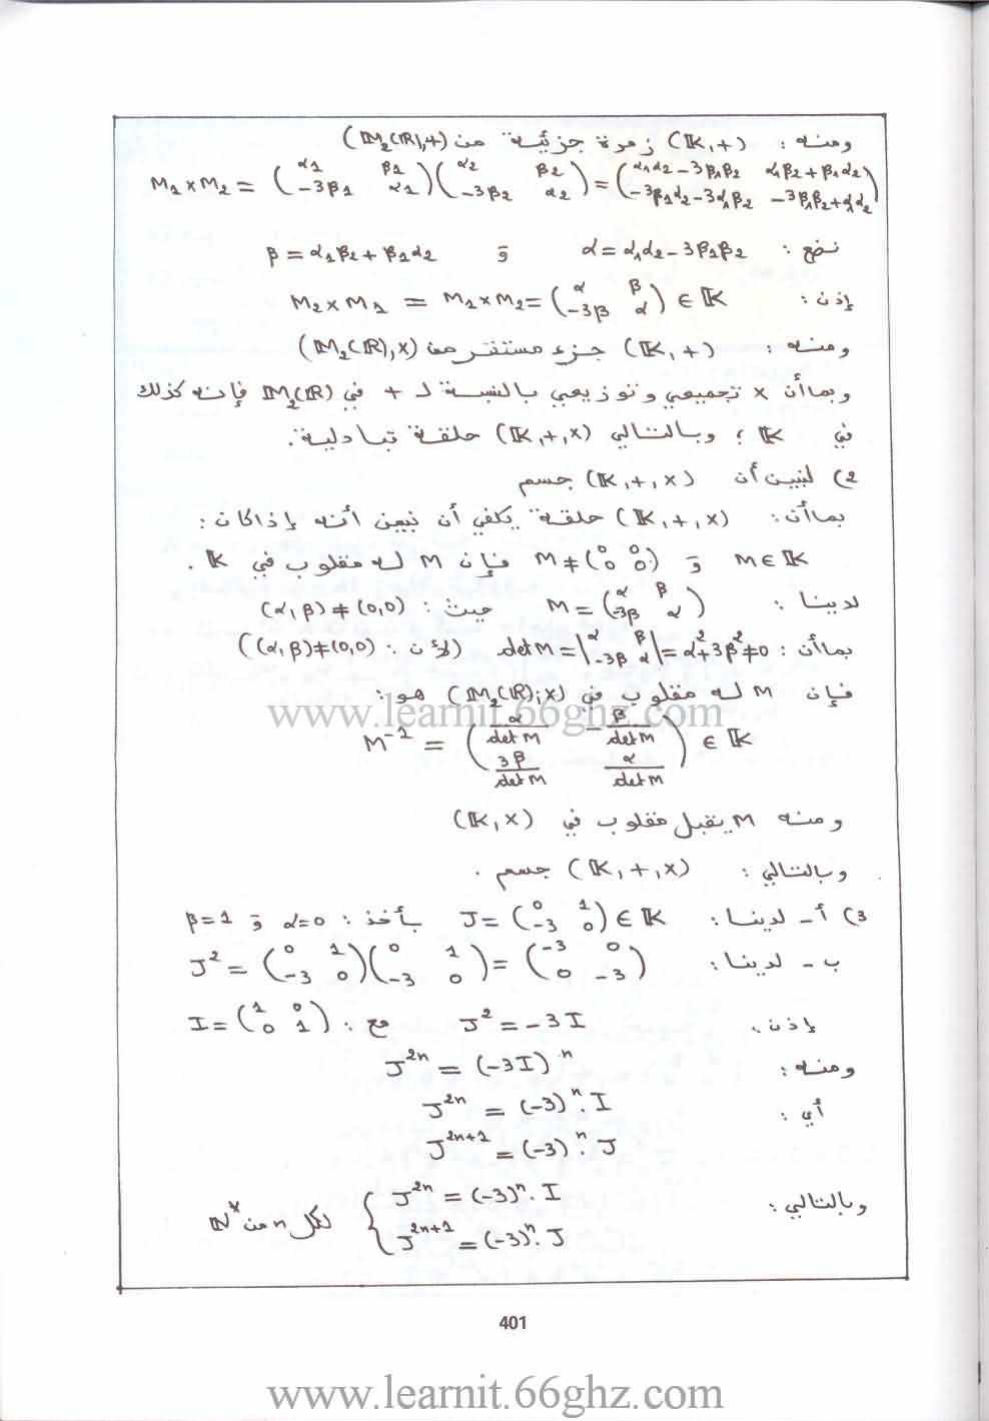 ومنه : (K,+) زمرة جزئية من (M₂(ℝ),+)
M₁×M₂ = (α₁ β₁ ; -3β₁ α₁)(α₂ β₂ ; -3β₂ α₂) = (α₁α₂-3β₁β₂ α₁β₂+β₁α₂ ; -3β₁α₂-3α₁β₂ -3β₁β₂+α₁α₂)
نضع : α = α₁α₂-3β₁β₂ و β = α₁β₂+β₁α₂
إذن : M₂×M₁ = M₁×M₂ = (α β ; -3β α) ∈ K
ومنه : (K,+) جزء مستقر من (M₂(ℝ),×)
وبما أن × تجميعي وتوزيعي بالنسبة لـ + في M₂(ℝ) فإنه كذلك
في K ؛ وبالتالي (K,+,×) حلقة تبادلية.
2) لنبين أن (K,+,×) جسم
بما أن : (K,+,×) حلقة يكفي أن نبين أنه إذا كان :
M∈K و M≠(0 0 ; 0 0) فإن M له مقلوب في K .
لدينا : M = (α β ; -3β α) حيث : (α,β)≠(0,0)
بما أن : det M = |α β ; -3β α| = α²+3β²≠0 (لأن : (α,β)≠(0,0))
فإن M له مقلوب في (M₂(ℝ);×) هو :
M⁻¹ = (α/det M -β/det M ; 3β/det M α/det M) ∈ K
ومنه M يقبل مقلوب في (K,×)
وبالتالي : (K,+,×) جسم .
3) أ - لدينا : J = (0 1 ; -3 0) ∈ K بأخذ : α=0 و β=1
ب - لدينا : J² = (0 1 ; -3 0)(0 1 ; -3 0) = (-3 0 ; 0 -3)
إذن . J² = -3I مع : I = (1 0 ; 0 1)
ومنه : J²ⁿ = (-3I)ⁿ
أي : J²ⁿ = (-3)ⁿ. I
J²ⁿ⁺¹ = (-3)ⁿ. J
وبالتالي : { J²ⁿ = (-3)ⁿ. I
J²ⁿ⁺¹ = (-3)ⁿ. J لكل n من ℕ*
www.learnit.66ghz.com
401
www.learnit.66ghz.com